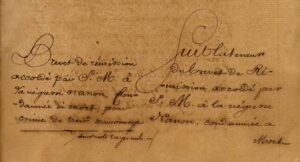 Brevet de rémission
accordé par S. M. à
la négresse nanon Con-
damnée à mort, pour
crime de
Suit la teneur
du Brevet de Ré-
mission accordé par
S. M. à la négresse
Nanon, condamnée à
Mort